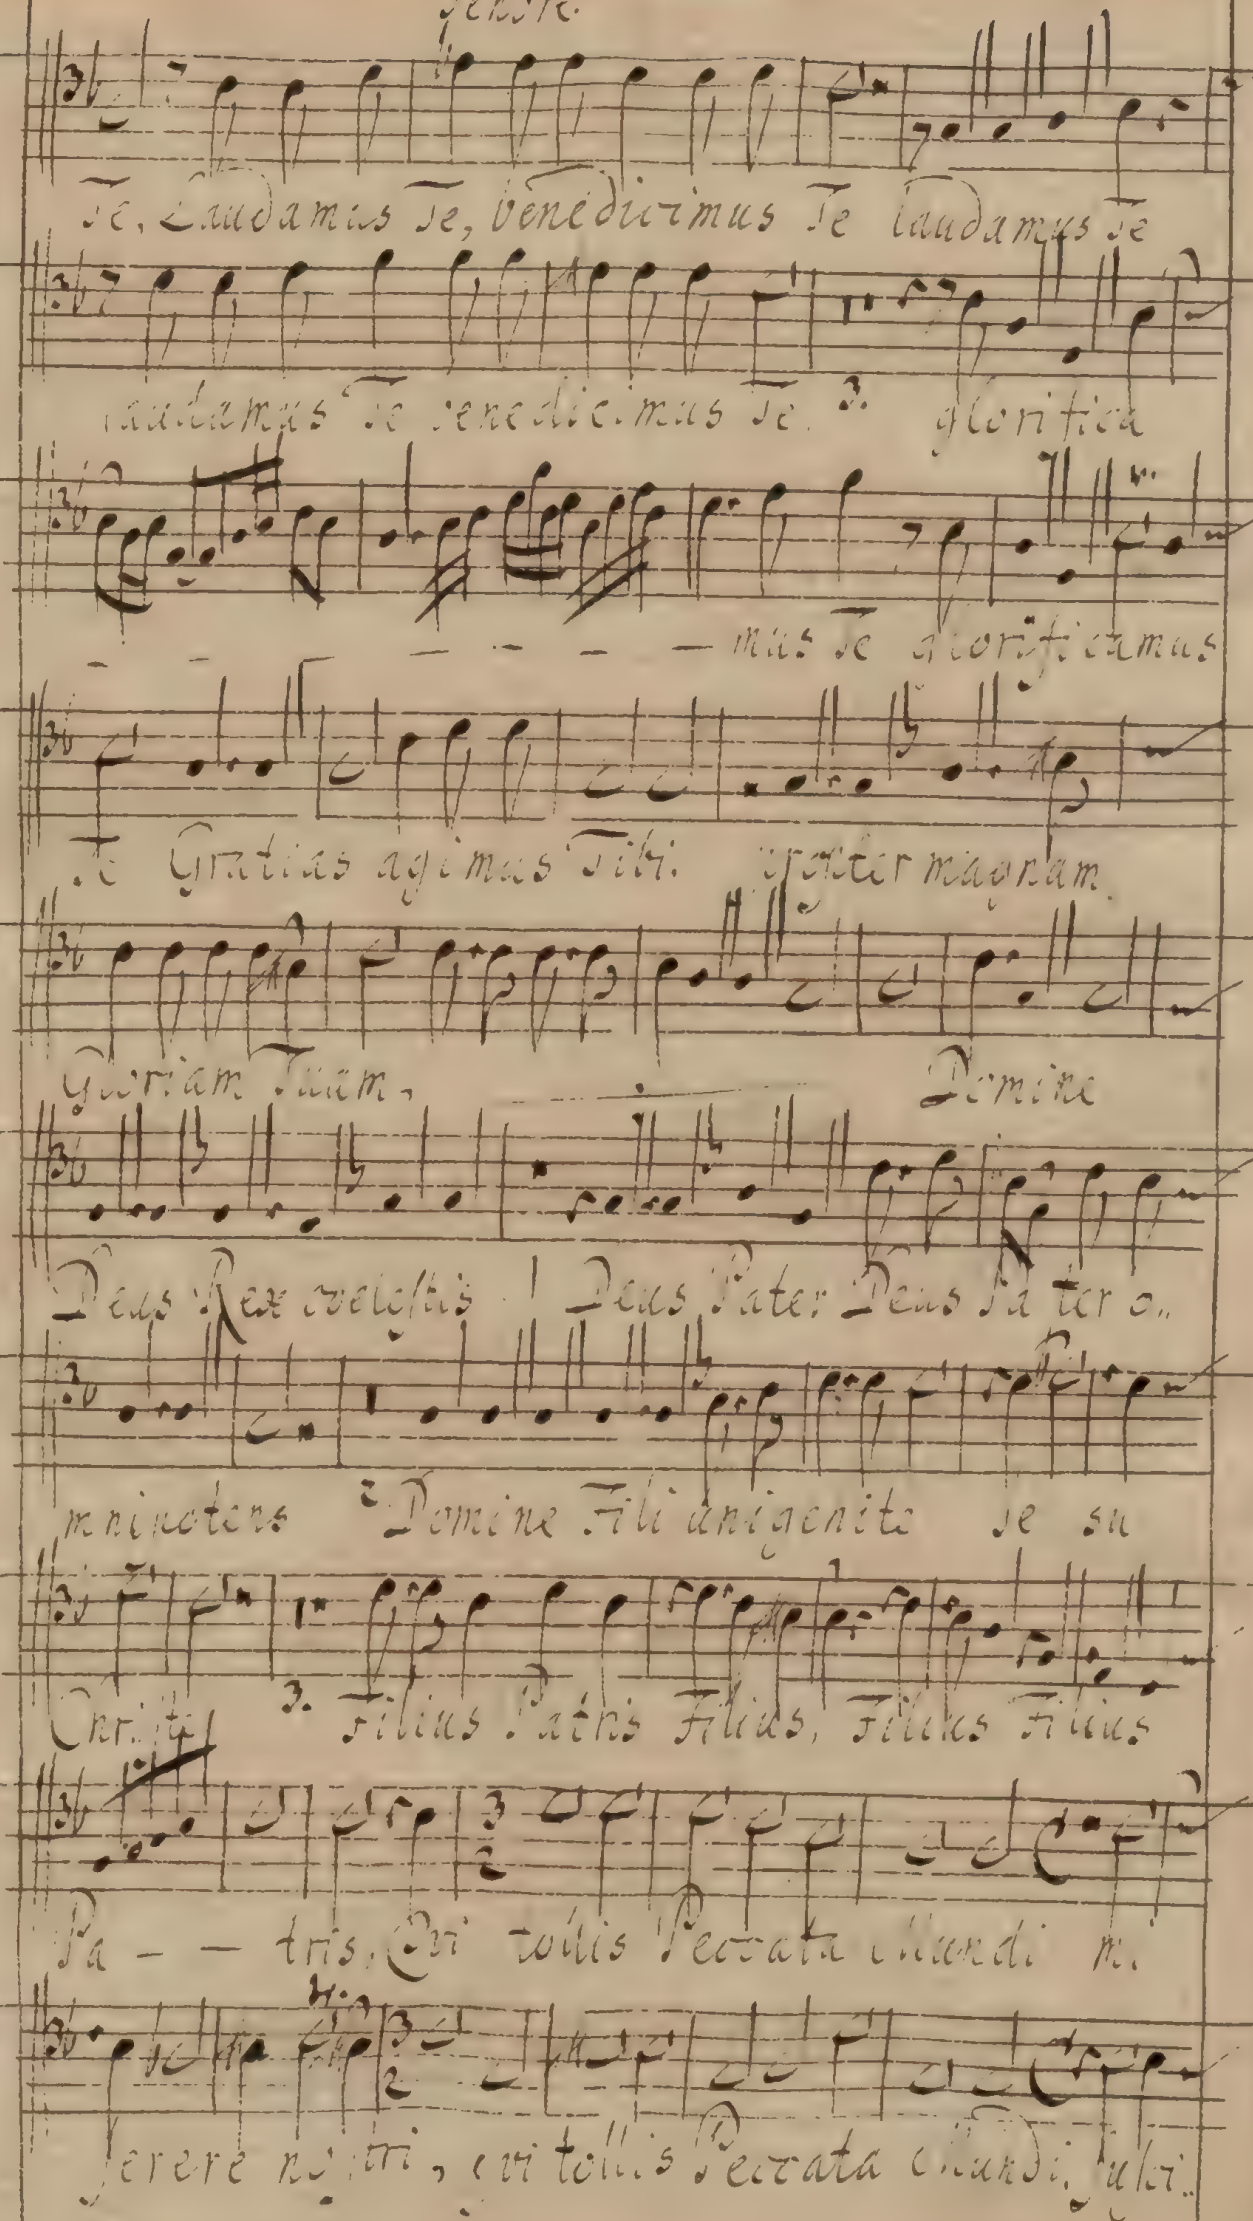 Te, Laudamus Te, benedicimus Te laudamus Te
laudamus Te benedicimus Te. 3. glorifica
- - - - - - mus Te glorificamus
Te Gratias agimus Tibi. propter magnam
Gloriam Tuam. Domine
Deus Rex coelestis Deus Pater Deus Pa ter o..
mnipotens 2 Domine Fili unigenite Je su
Christe 3. Filius Patris Filius, Filius Filius
Pa - - tris, Qui tollis Peccata Mundi mi
serere nostri, qui tollis Peccata Mundi, susci..